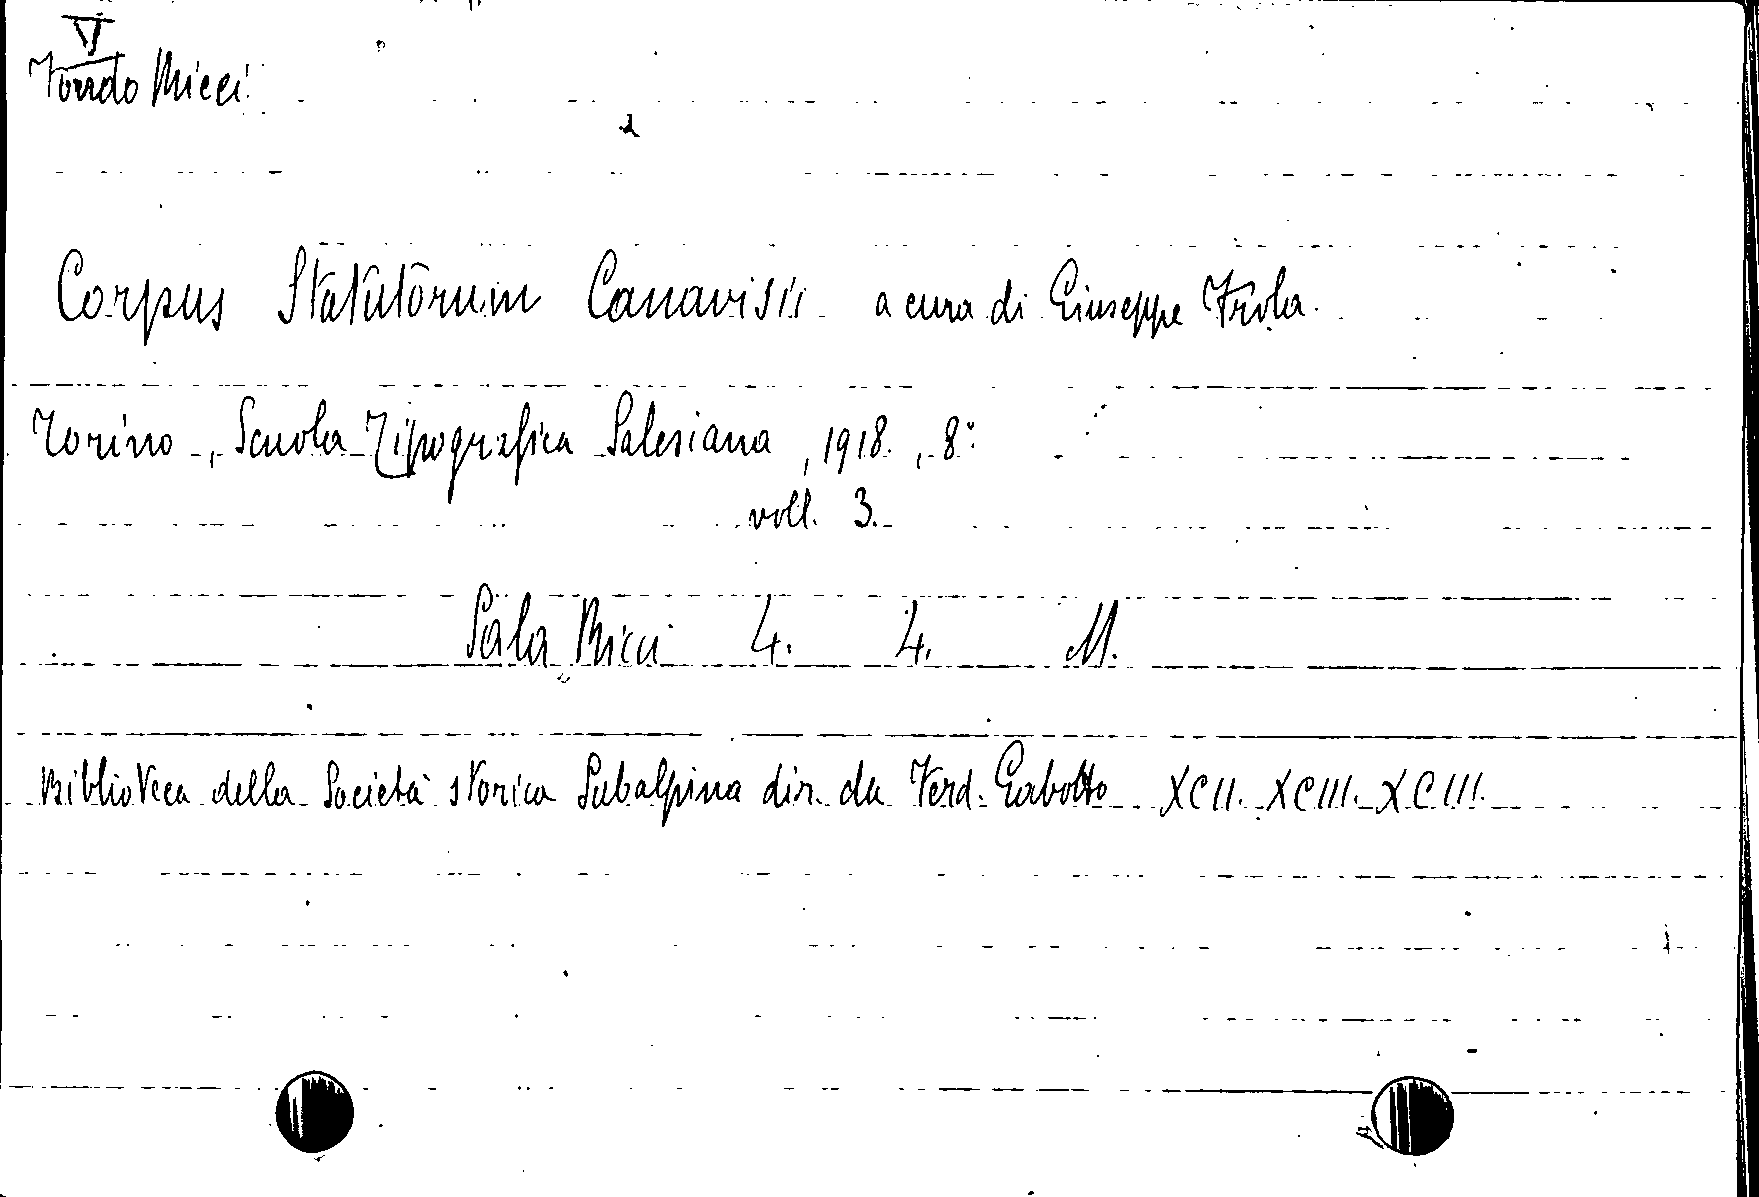 VI
Fondo Ricci
Corpus Statutorum Canavisii a cura di Giuseppe Frola.
Torino, Scuola Tipografica Salesiana, 1918., 8°
voll. 3.
Sala Ricci 4. 4. M.
Biblioteca della Società storica Subalpina dir. da Ferd. Gabotto XCII. XCIII. XCIII.